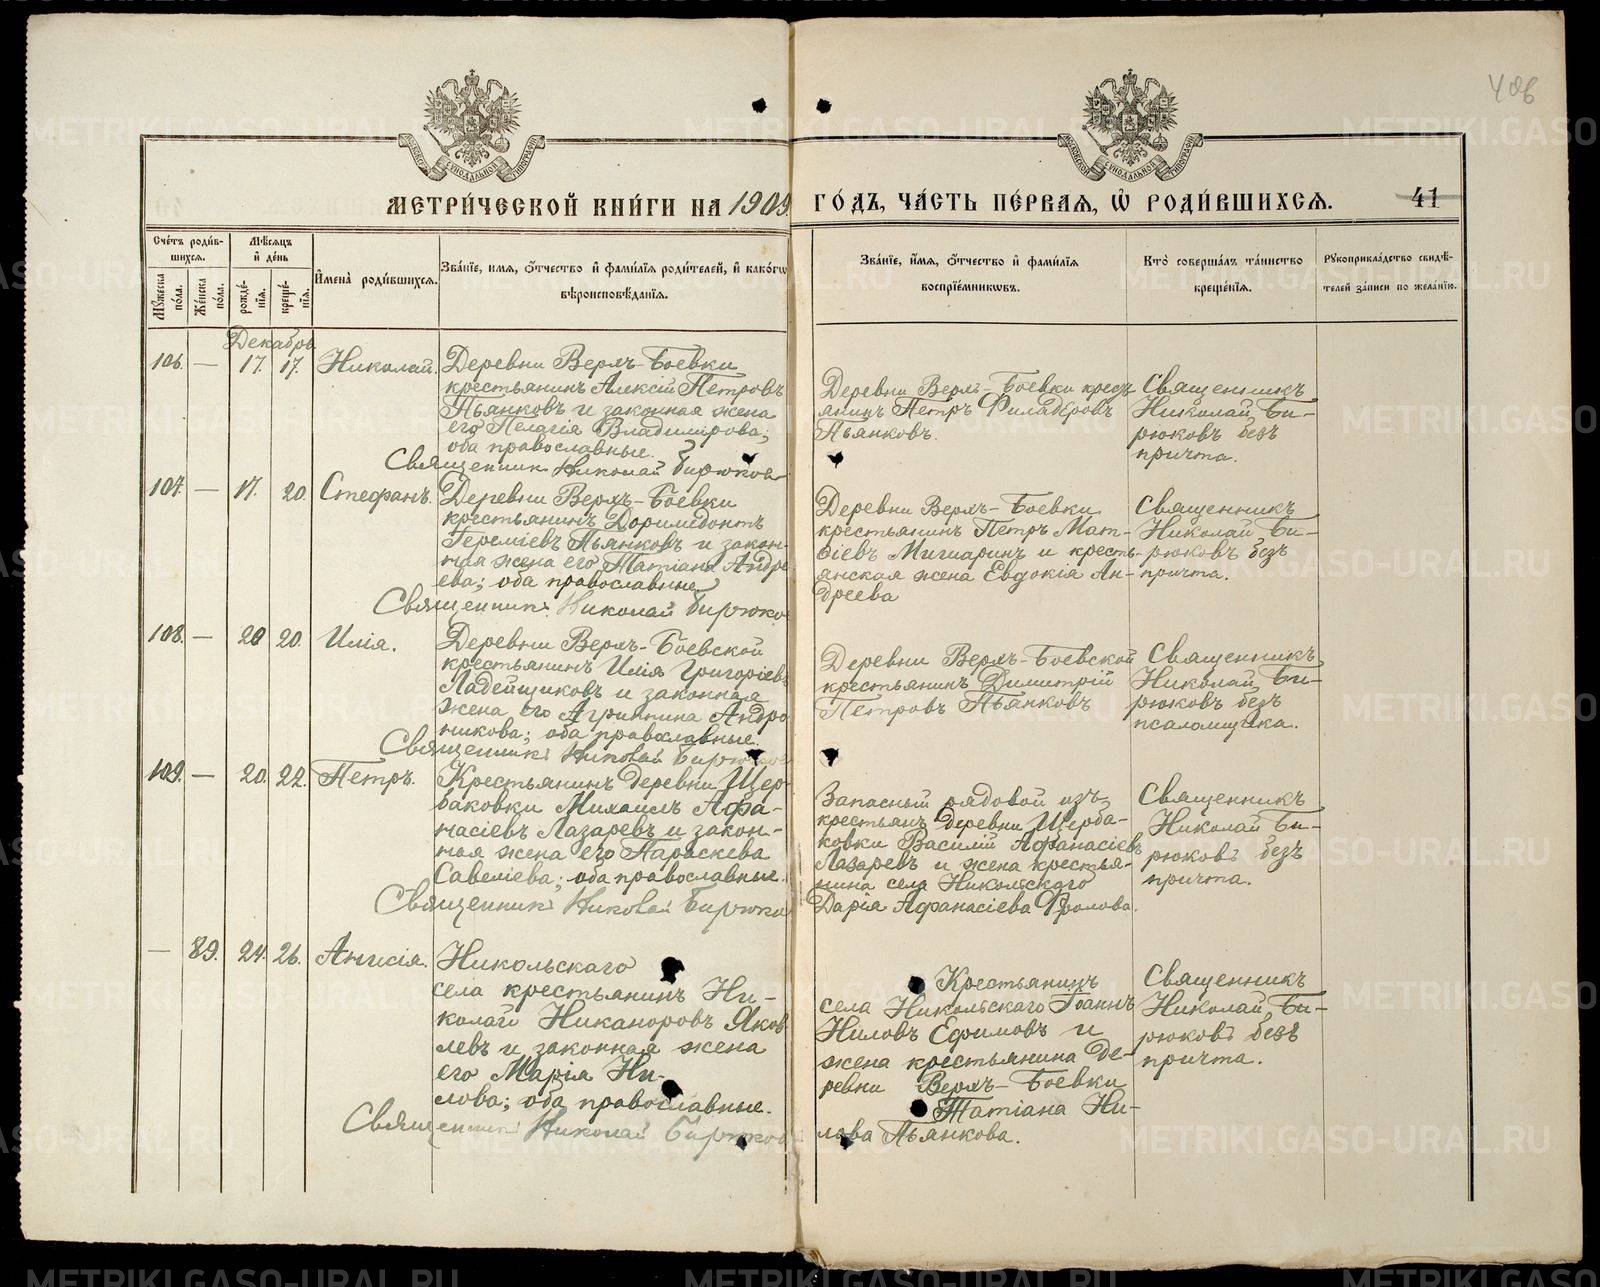 406
МОСКОВСКОЙ СѴНОДАЛЬНОЙ ТИПОГРАФІИ
МОСКОВСКОЙ СѴНОДАЛЬНОЙ ТИПОГРАФІИ
МЕТРИ́ЧЕСКОЙ КНИ́ГИ НА 1909 ГО́ДЪ, ЧА́СТЬ ПЕ́РВАЯ, Ѽ РОДИ́ВШИХСЯ.
41
Сче́тъ роди́в-
шихся.
Мѣ́сяцъ
и҆ де́нь
Мꙋ́жеска по́ла.
Же́нска по́ла.
рожде́-
нїя.
креще́-
нїя.
И҆мена̀ роди́вшихся.
Зва́нїе, и҆мя, о҆́тчество и҆ фами́лїя роди́телей, и҆ како́гѡ
вѣроисповѣ́данїя.
Зва́нїе, и҆́мя, о҆́тчество и҆ фами́лїя
воспрїе́мникѡвъ.
Кто̀ соверша́лъ та́инство
креще́нїя.
Рꙋкоприкла́дство свидѣ́-
телей за́писи по жела́нїю.
Декабрь
106. — 17. 17. Николай.
Деревни Верхъ-Боевки
крестьянинъ Алексій Петровъ
Пьянковъ и законная жена
его Пелагія Владимірова;
оба православные.
Священникъ Николай Бирюковъ
Деревни Верхъ-Боевки кресть
янинъ Петръ Филаѳеровъ
Пьянковъ.
Священникъ
Николай Би-
рюковъ безъ
причта.
107. — 17. 20. Стефанъ.
Деревни Верхъ-Боевки
крестьянинъ Доримедонтъ
Іереміевъ Пьянковъ и закон-
ная жена его Татіана Андре
ева; оба православные
Священникъ Николай Бирюко
Деревни Верхъ-Боевки
крестьянинъ Петръ Мат-
ѳіевъ Мишаринъ и кресть-
янская жена Евдокія Ан-
дреева
Священникъ
Николай Би-
рюковъ безъ
причта.
108. — 20 20. Илія.
Деревни Верхъ-Боевской
крестьянинъ Илія Григоріевъ
Ладейщиковъ и законная
жена его Агриппина Андро
никова; оба православные.
Священникъ Николай Бирюков
Деревни Верхъ-Боевской
крестьянинъ Димитрій
Петровъ Пьянковъ
Священникъ
Николай Би-
рюковъ безъ
псаломщика.
109. — 20. 22. Петръ.
Крестьянинъ деревни Щер-
баковки Михаилъ Афа-
насіевъ Лазаревъ и закон-
ная жена его Параскева
Савеліева; оба православные.
Священникъ Николай Бирюко
Запасный рядовой изъ
крестьянъ деревни Щерба-
ковки Василій Афанасіевъ
Лазаревъ и жена крестья-
нина села Никольскаго
Дарія Афанасіева Фролова.
Священникъ
Николай Би-
рюковъ безъ
причта.
— 89. 24. 26. Анисія.
Никольскаго
села крестьянинъ Ни-
колай Никаноровъ Яков
левъ и законная жена
его Марія Ни-
лова; оба православные.
Священникъ Николай Бирюков
Крестьянинъ
села Никольскаго Іоаннъ
Ниловъ Ефимовъ и
жена крестьянина де-
ревни Верхъ-Боевки
Татіана Ни-
лова Пьянкова.
Священникъ
Николай Би-
рюковъ безъ
причта.
METRIKI.GASO-URAL.RU